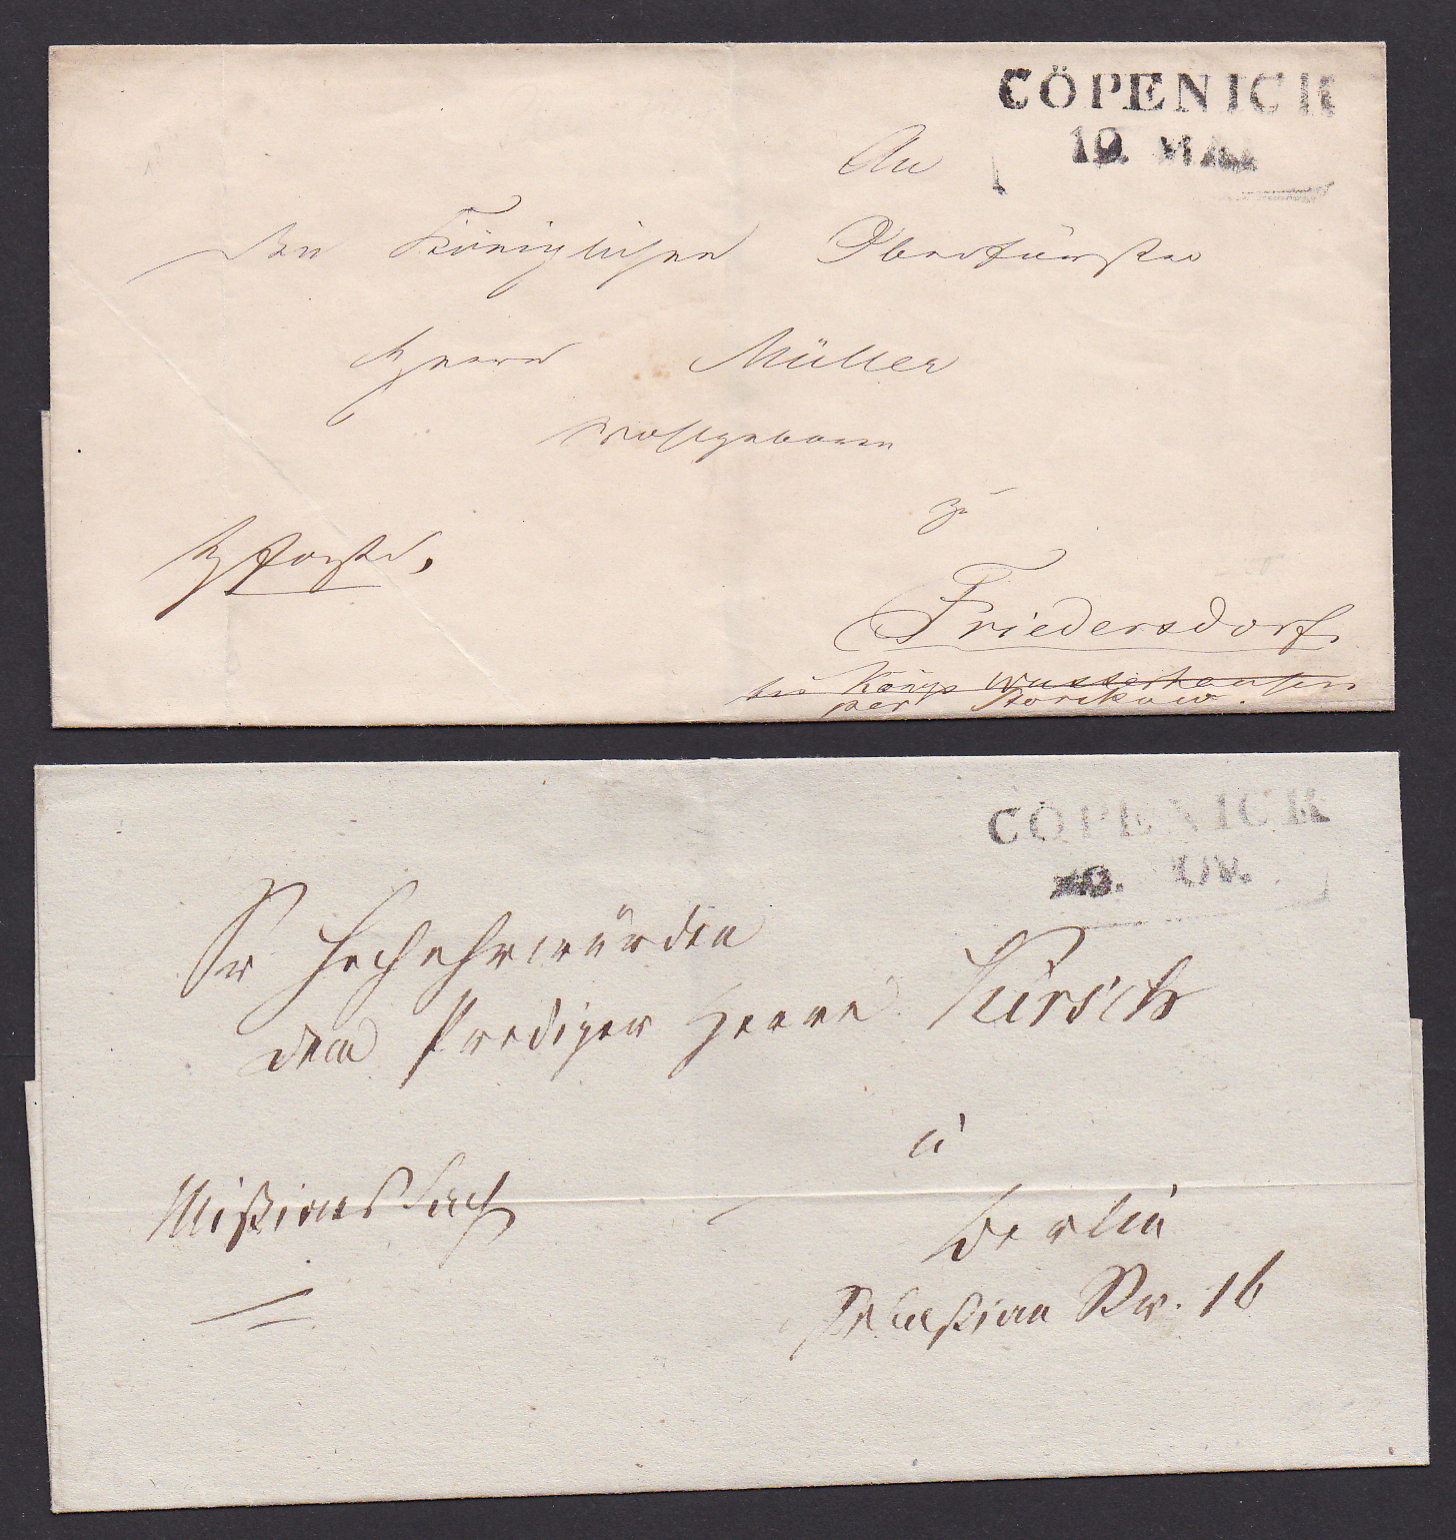 CÖPENICK
19. MAI
An
den Königlichen Oberförster
Herrn Müller
Wohlgeboren
zu
Friedersdorf.
bei Königs Wusterhausen
per Storckow.
CÖPENICK
OV.
Sr Hochehrwürden
dem Prediger Herrn
à
Berlin
Sebastian Str. 16
Mißions Sach